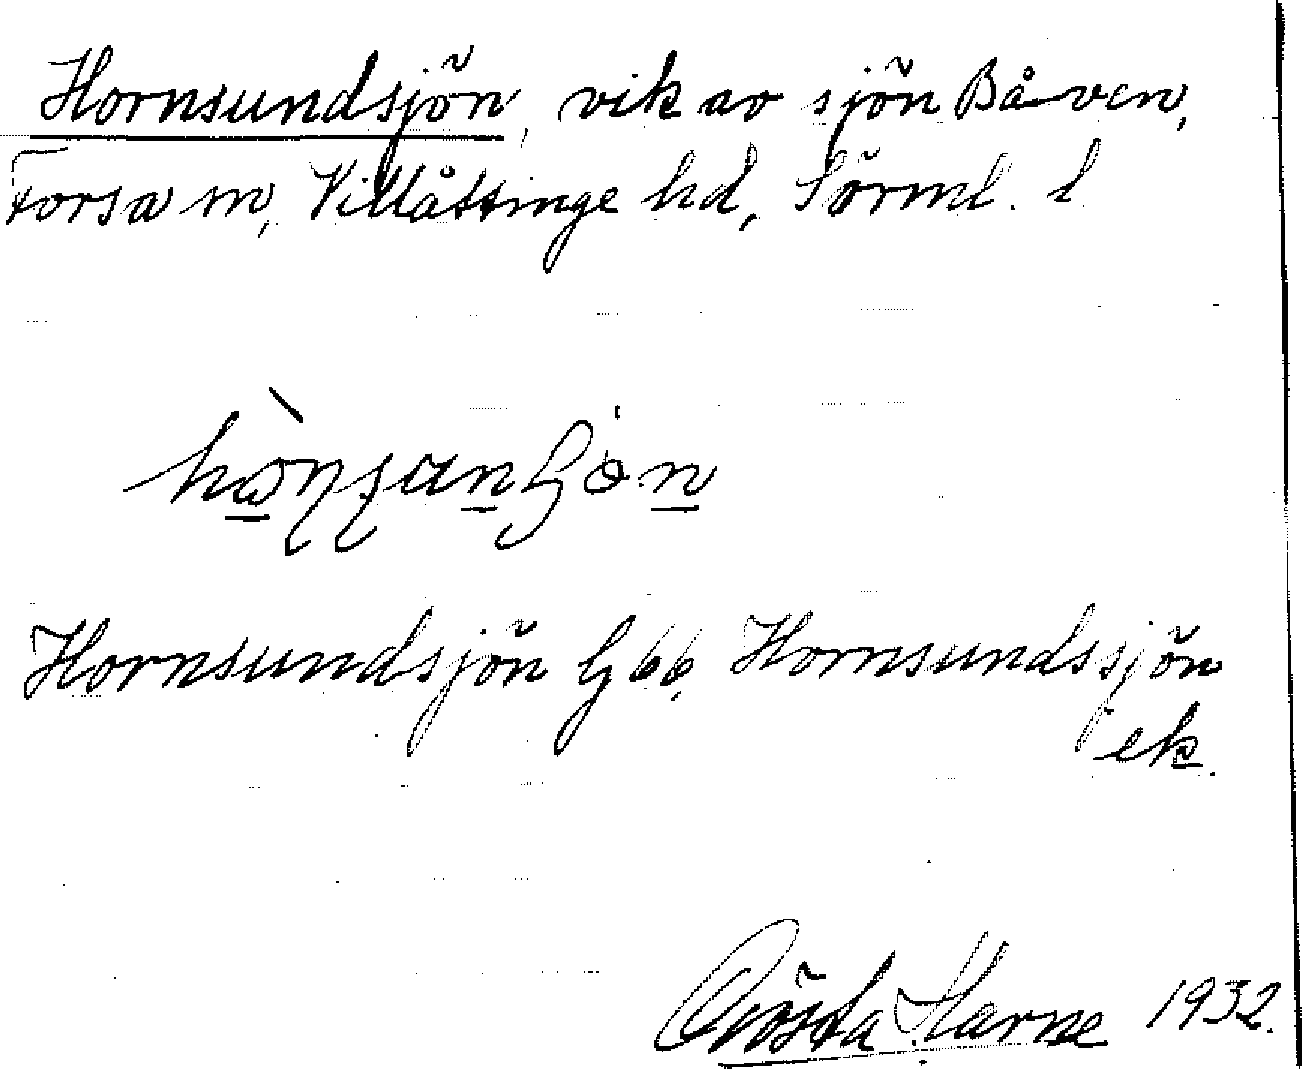 Hornsundsjön, vik av sjön Båven,
Forsa sn, Villåttinge hd, Sörml. l
Hornsundsjön G 66, Hornsundssjön
ek.
Gösta 1932.